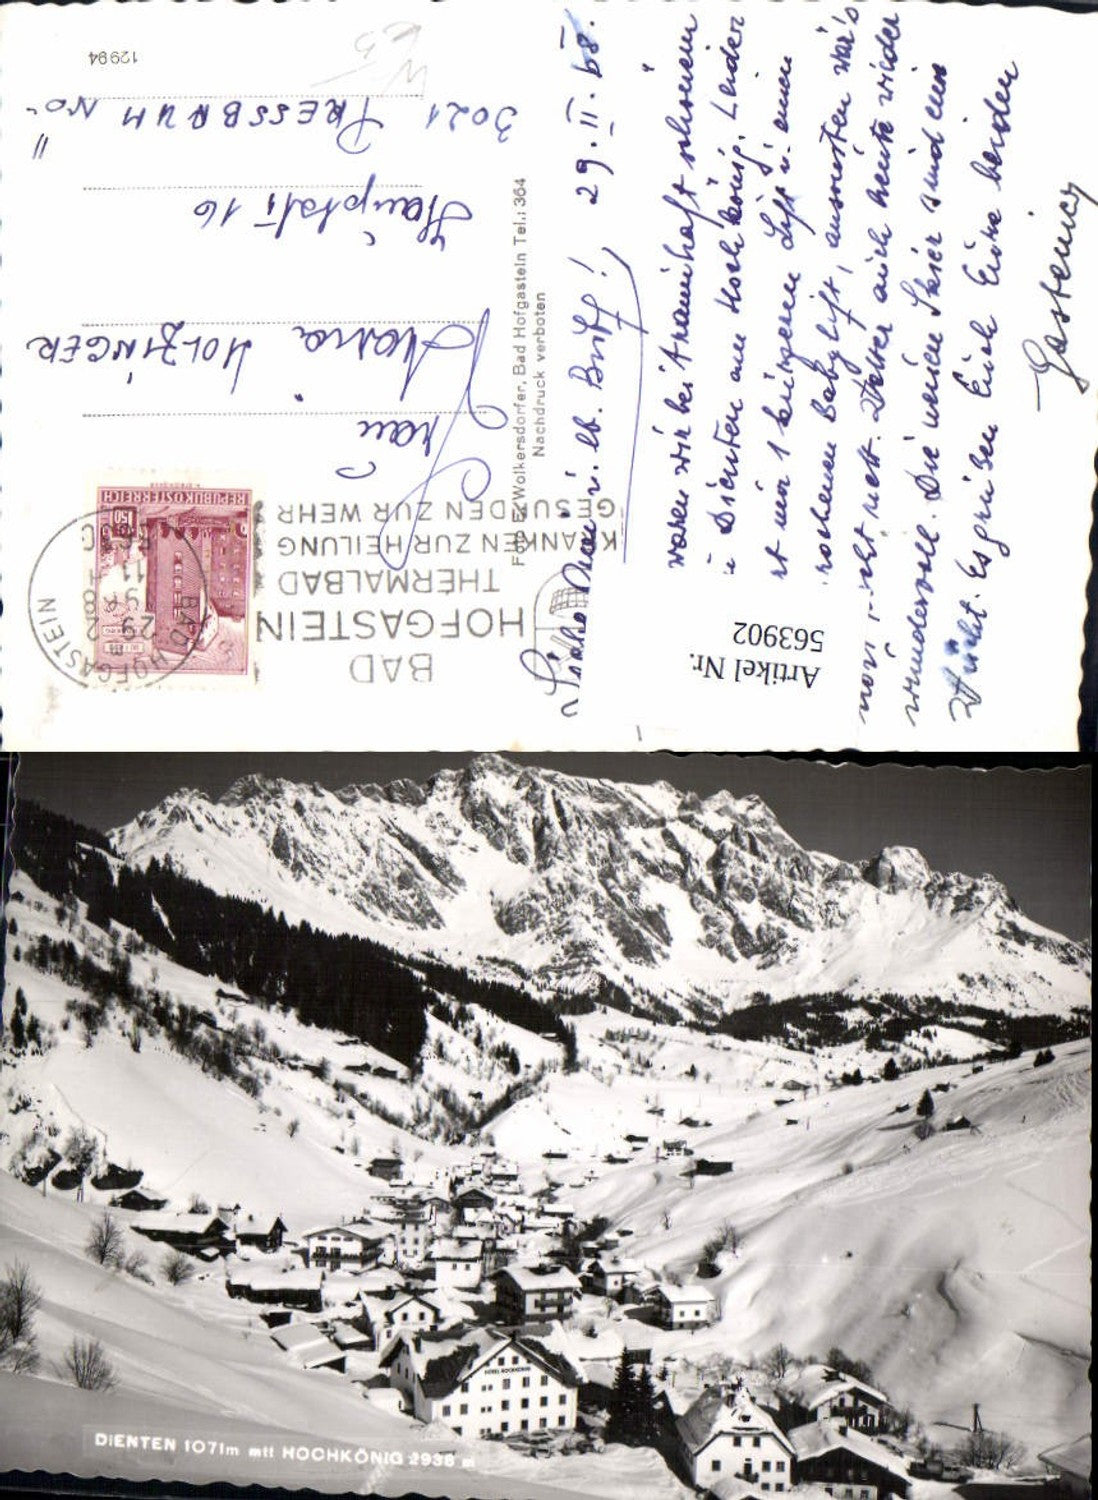 12994
3021 PRESSBAUM NÖ.
Hauptstr. 16
Maria HOLZINGER
Frau
Foto E. Wolkersdorfer, Bad Hofgastein Tel.: 364
Nachdruck verboten
REPUBLIK ÖSTERREICH
1.50
BAD HOFGASTEIN
29. 2. 68
BAD
HOFGASTEIN
THERMALBAD
KRANKEN ZUR HEILUNG
GESUNDEN ZUR WEHR
29. II. 68.
u. lb. Burf!
waren wir bei traumhaft schönem
in Dienten am Hochkönig. Leider
nur 1 längeren Lift u. einen
Babylift, ansonsten wär's
nicht nett. Wetter auch heute wieder
wundervoll. Die neuen Skier sind eine
Wucht. Es grüßen Euch Eure beiden
Gasteiner
Artikel Nr.
563902
HOTEL HOCHKÖNIG
DIENTEN 1071m mit HOCHKÖNIG 2938 m